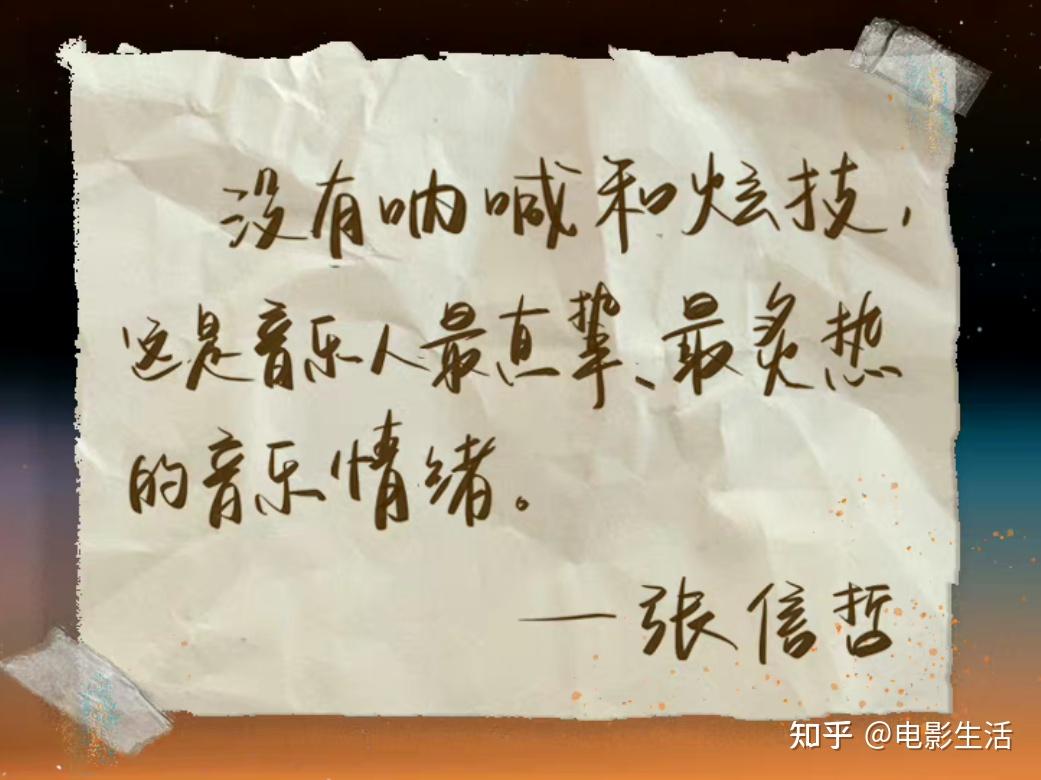 没有呐喊和炫技，
这是音乐人最真挚、最炙热
的音乐情绪。
—张信哲
知乎 @电影生活